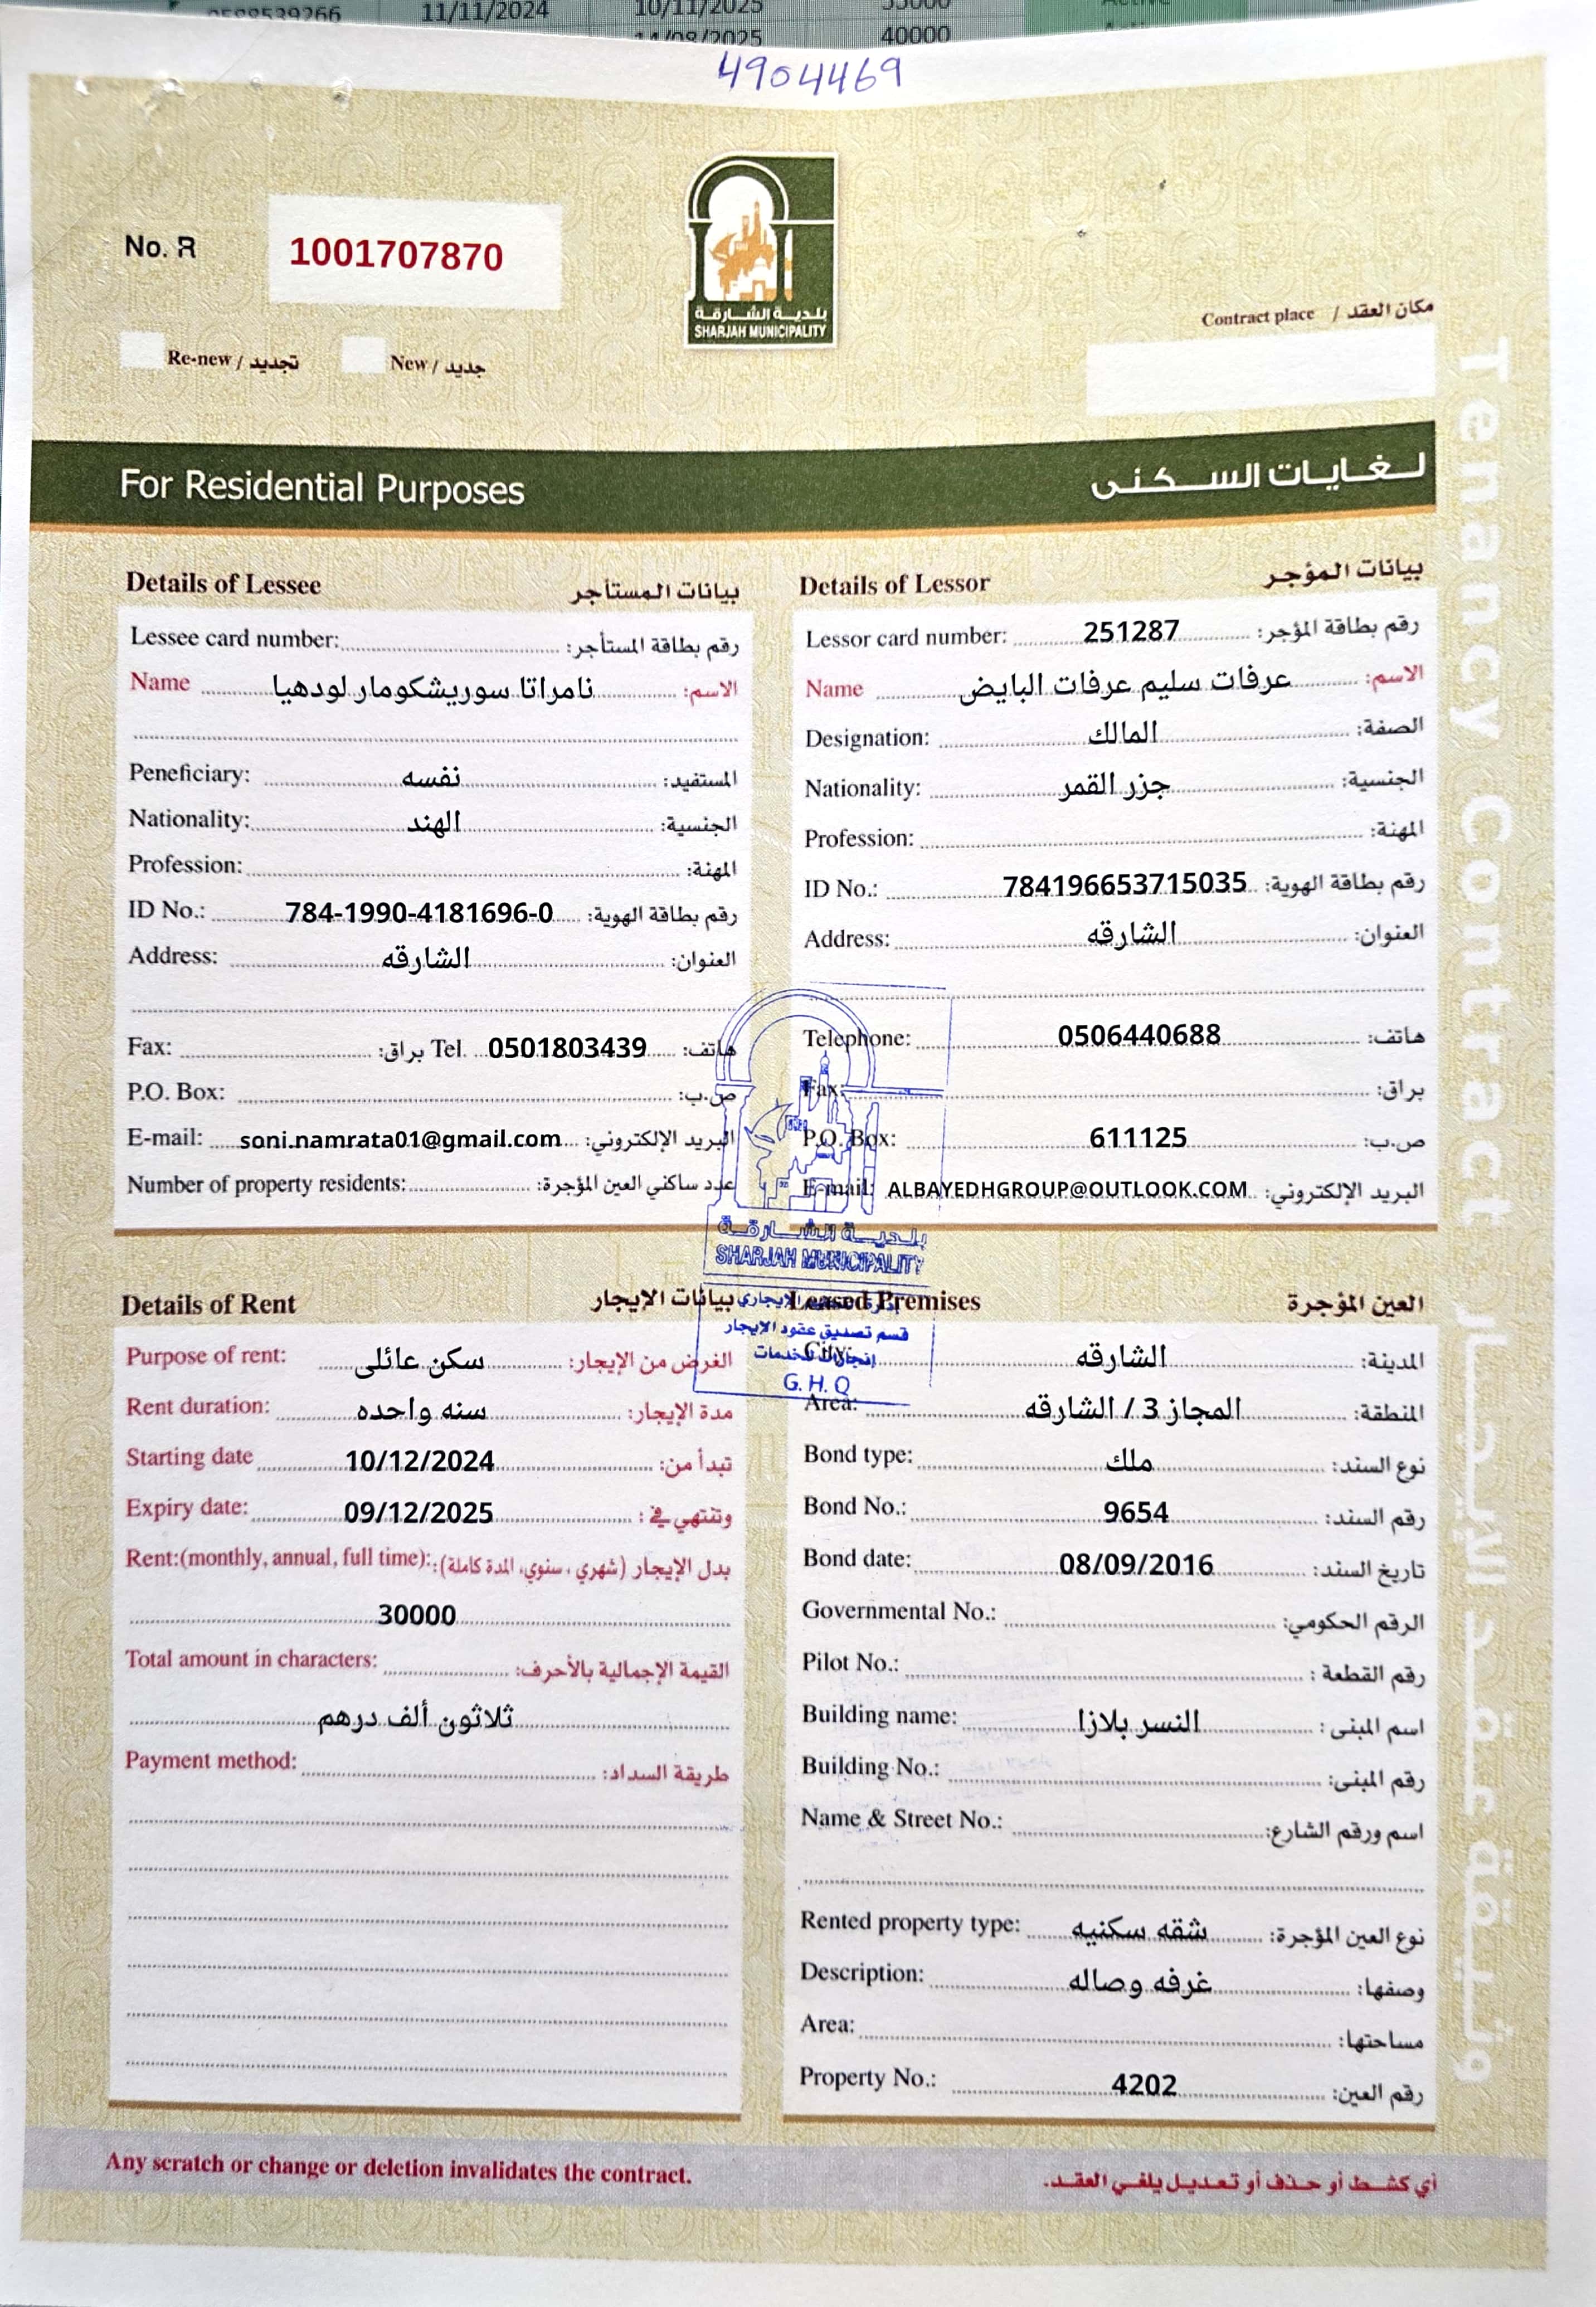 11/11/2024 10/11/2025
14/08/2025 40000
4904469
No. R 1001707870
بلدية الشارقة
SHARJAH MUNICIPALITY
Contract place / مكان العقد
Re-new / تجديد New / جديد
For Residential Purposes لغايات السكنى
Tenancy Contract
Details of Lessee بيانات المستأجر
Lessee card number: رقم بطاقة المستأجر:
Name نامراتا سوريشكومار لودهيا الاسم:
Peneficiary: نفسه المستفيد:
Nationality: الهند الجنسية:
Profession: المهنة:
ID No.: 784-1990-4181696-0 رقم بطاقة الهوية:
Address: الشارقه العنوان:
Fax: براق: Tel. 0501803439 هاتف:
P.O. Box: ص.ب:
E-mail: soni.namrata01@gmail.com البريد الإلكتروني:
Number of property residents: عدد ساكني العين المؤجرة:
Details of Lessor بيانات المؤجر
Lessor card number: 251287 رقم بطاقة المؤجر:
Name عرفات سليم عرفات البايض الاسم:
Designation: المالك الصفة:
Nationality: جزر القمر الجنسية:
Profession: المهنة:
ID No.: 784196653715035 رقم بطاقة الهوية:
Address: الشارقه العنوان:
Telephone: 0506440688 هاتف:
Fax: براق:
P.O. Box: 611125 ص.ب:
E-mail: ALBAYEDHGROUP@OUTLOOK.COM البريد الإلكتروني:
بلدية الشارقة
SHARJAH MUNICIPALITY
قسم تصديق عقود الايجار
G.H.Q
Details of Rent بيانات الإيجار
Purpose of rent: سكن عائلى الغرض من الإيجار:
Rent duration: سنه واحده مدة الإيجار:
Starting date 10/12/2024 تبدأ من:
Expiry date: 09/12/2025 وتنتهي في:
Rent:(monthly, annual, full time): بدل الإيجار (شهري، سنوي، المدة كاملة):
30000
Total amount in characters: القيمة الإجمالية بالأحرف:
ثلاثون ألف درهم
Payment method: طريقة السداد:
Leased Premises العين المؤجرة
City: الشارقه المدينة:
Area: المجاز 3 / الشارقه المنطقة:
Bond type: ملك نوع السند:
Bond No.: 9654 رقم السند:
Bond date: 08/09/2016 تاريخ السند:
Governmental No.: الرقم الحكومي:
Pilot No.: رقم القطعة :
Building name: النسر بلازا اسم المبنى :
Building No.: رقم المبنى:
Name & Street No.: اسم ورقم الشارع:
Rented property type: شقه سكنيه نوع العين المؤجرة:
Description: غرفه وصاله وصفها:
Area: مساحتها:
Property No.: 4202 رقم العين:
Any scratch or change or deletion invalidates the contract. أي كشط أو حذف أو تعديل يلغي العقد.